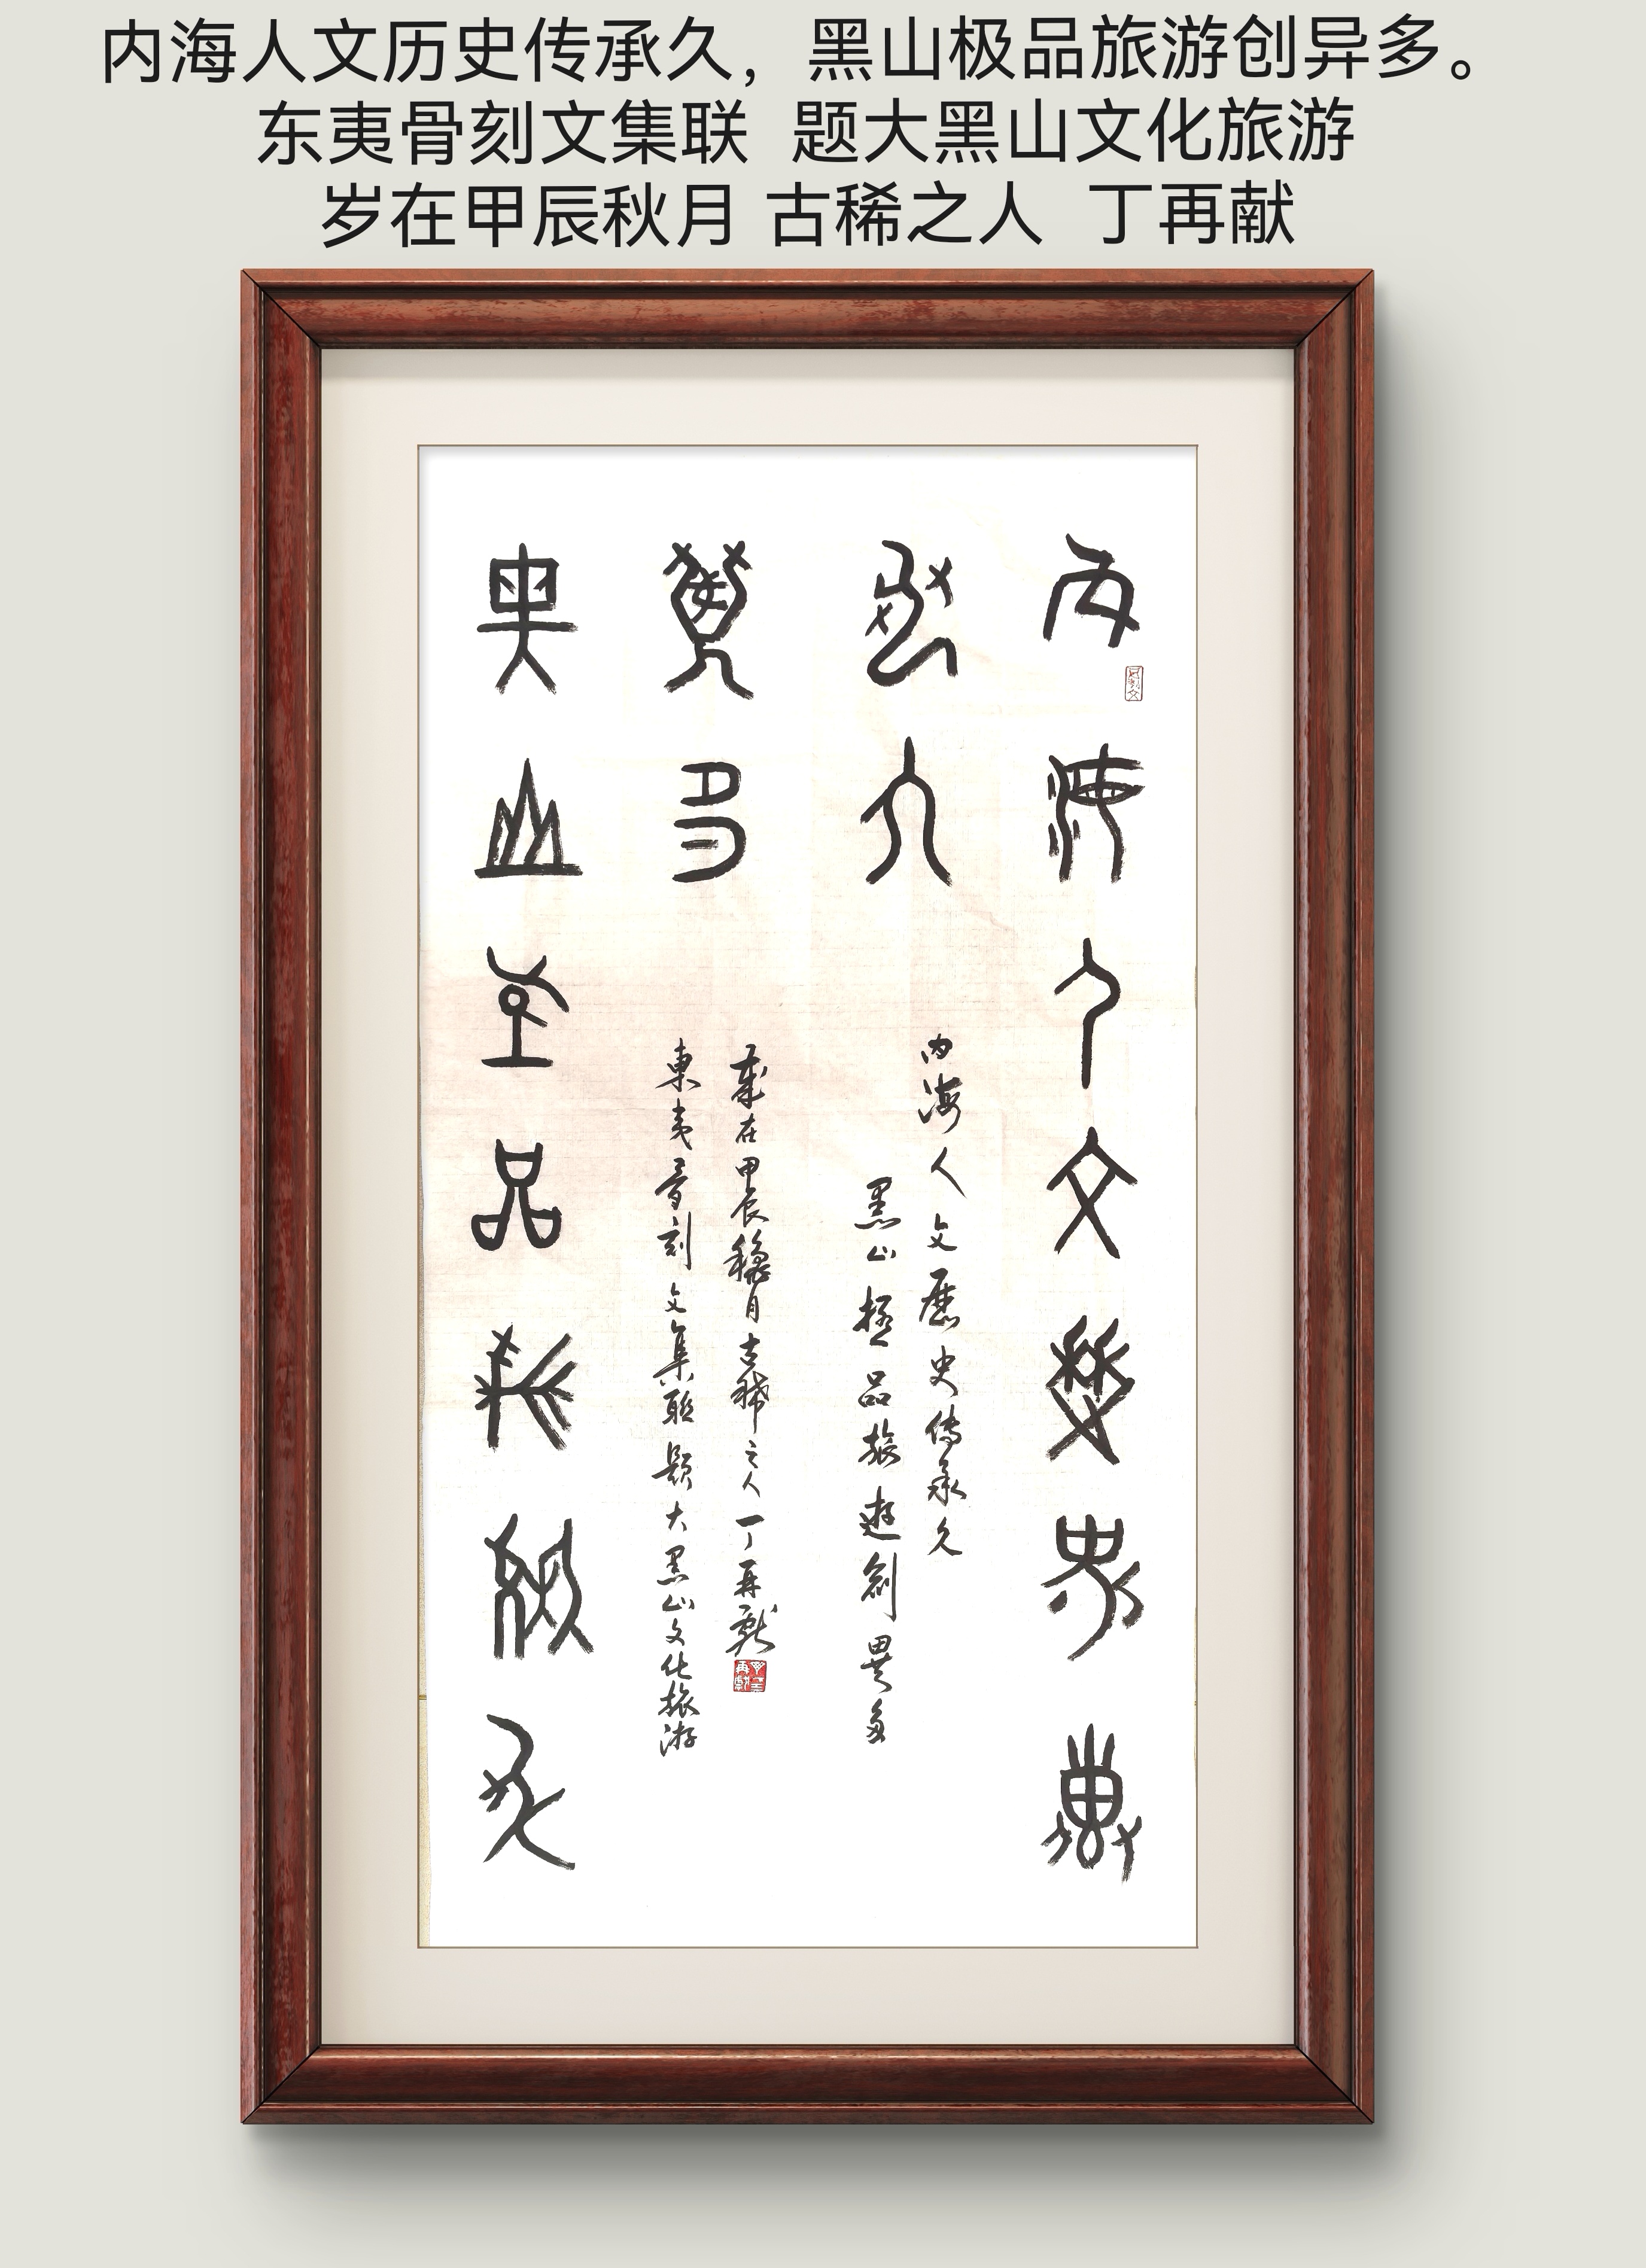 内海人文历史传承久，黑山极品旅游创异多。
东夷骨刻文集联 题大黑山文化旅游
岁在甲辰秋月 古稀之人 丁再献
内海人文歷史傳
承久
黑山極品旅游創
異多
内海人文歷史傳承久
黑山極品旅遊創異多
歲在甲辰穐月古稀之人丁再獻
東夷骨刻文集聯 題大黑山文化旅游